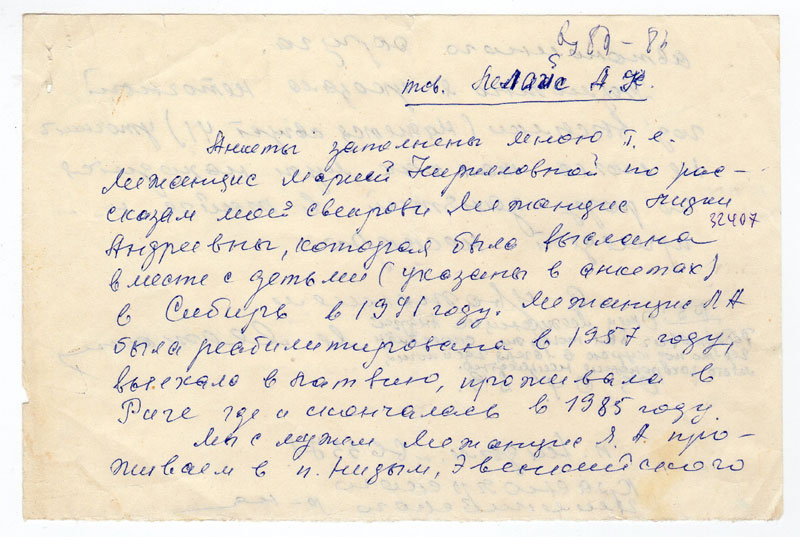 тов. А. К.
Анкеты заполнены мною т. е.
Межанцис Марией Кирилловной по рас-
сказам моей свекрови Межанцис
32407
Андреевны, которая была выслана
вместе с детьми (указаны в анкетах)
в Сибирь в 1941 году. Межанцис А
была реабилитирована в 1957 году,
выехала в Латвию, проживала в
Риге где и скончалась в 1985 году.
Мы с мужем Межанцис А. про-
живаем в п. Нидым, Эвенкийского